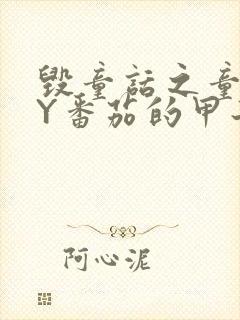 毁童话之童
Y番茄的甲
阿心泥